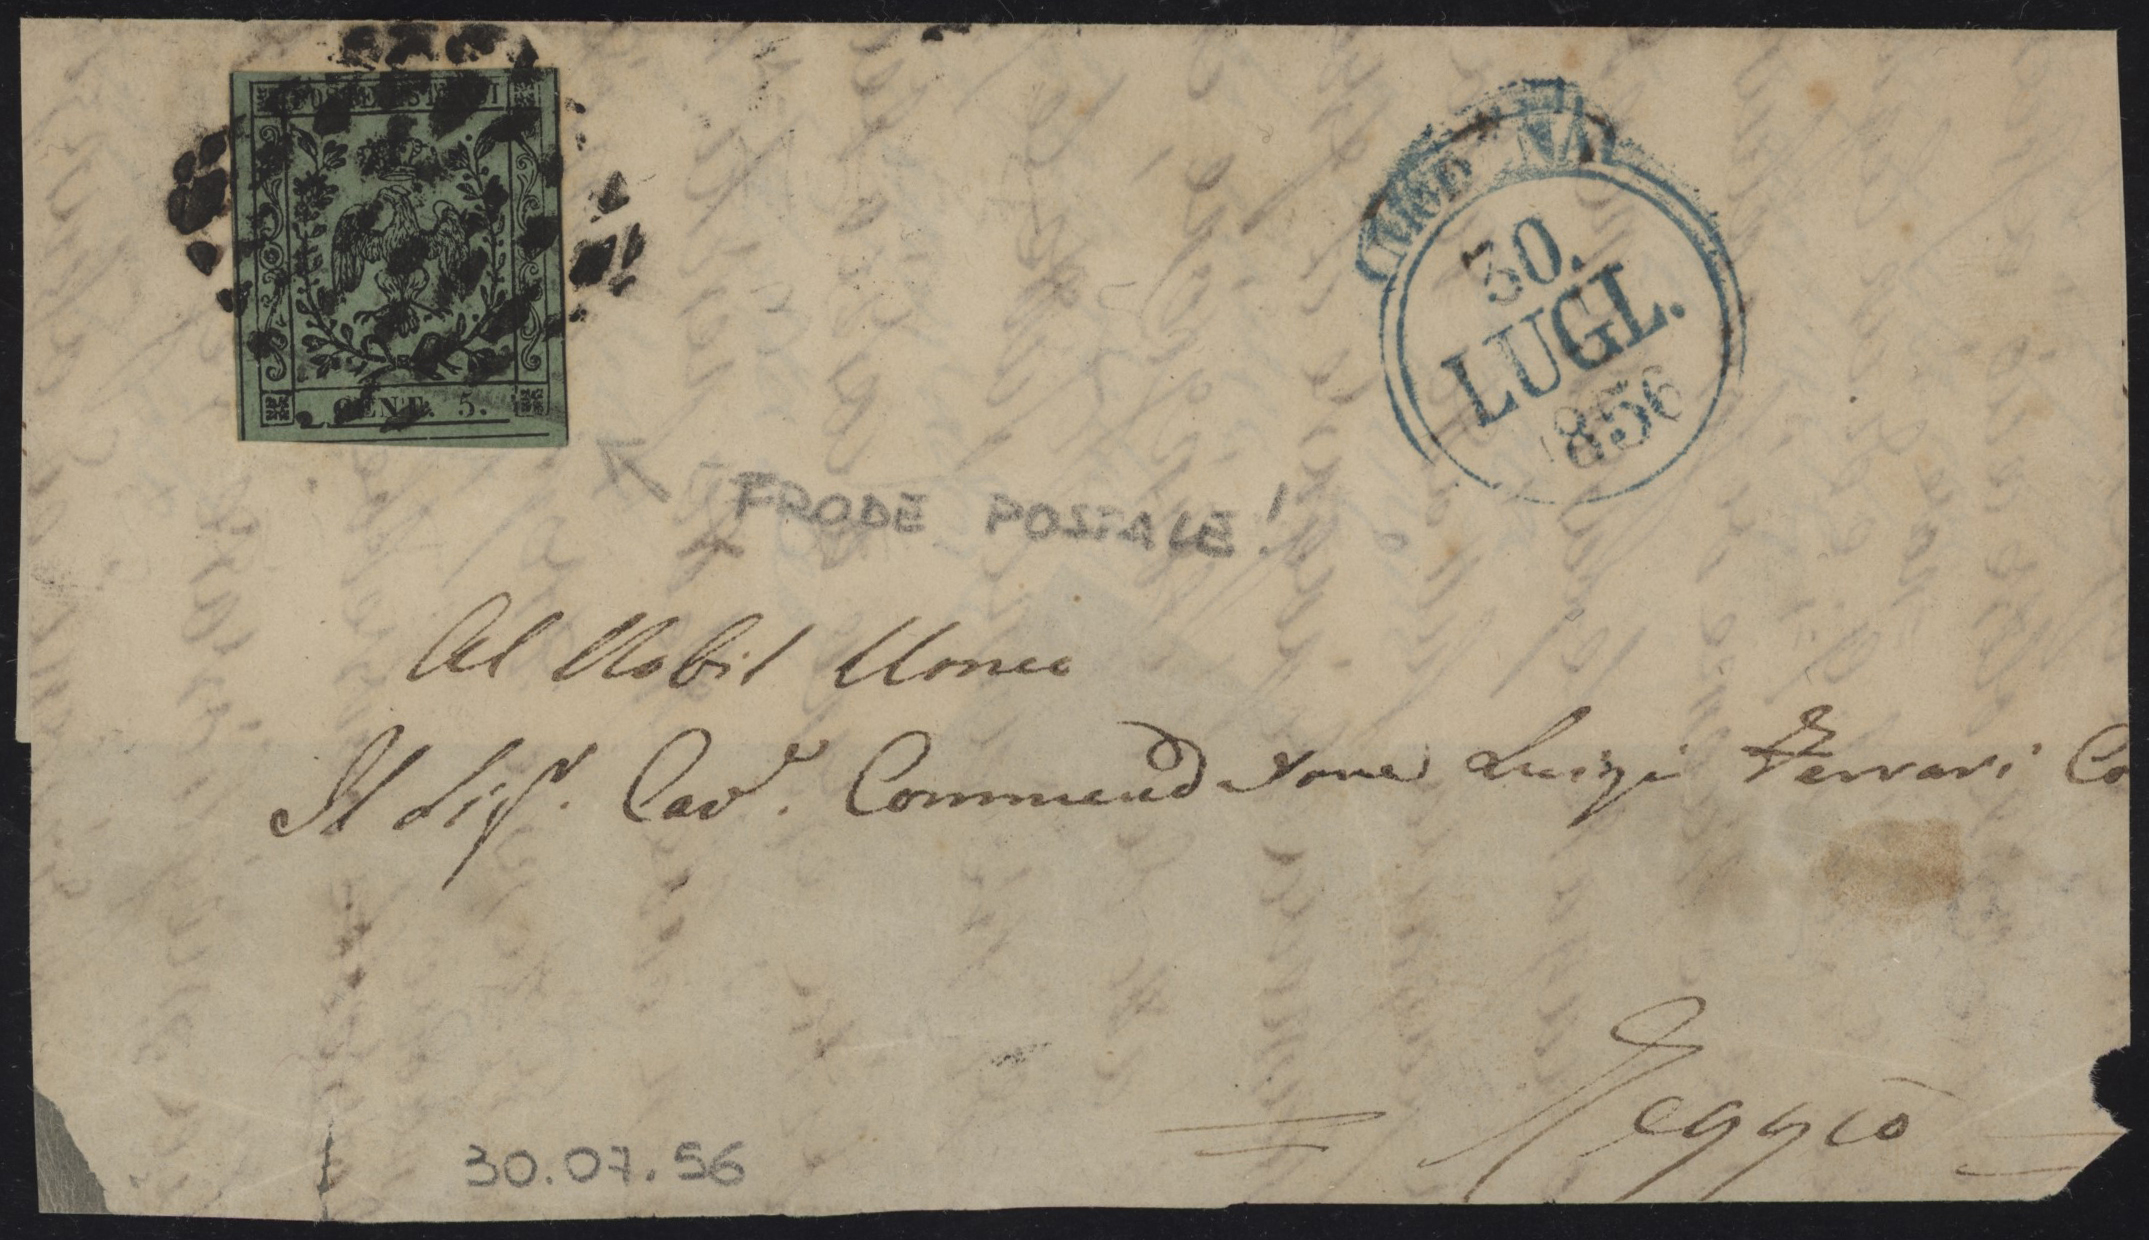 POSTE ESTENSI
CENT. 5.
MODENA
30.
LUGL.
856
FRODE POSTALE!
Al Nobil Uomo
Il Sigr. Cavr. Commendatore Luigi Ferrari Co
Reggio
30.07.56